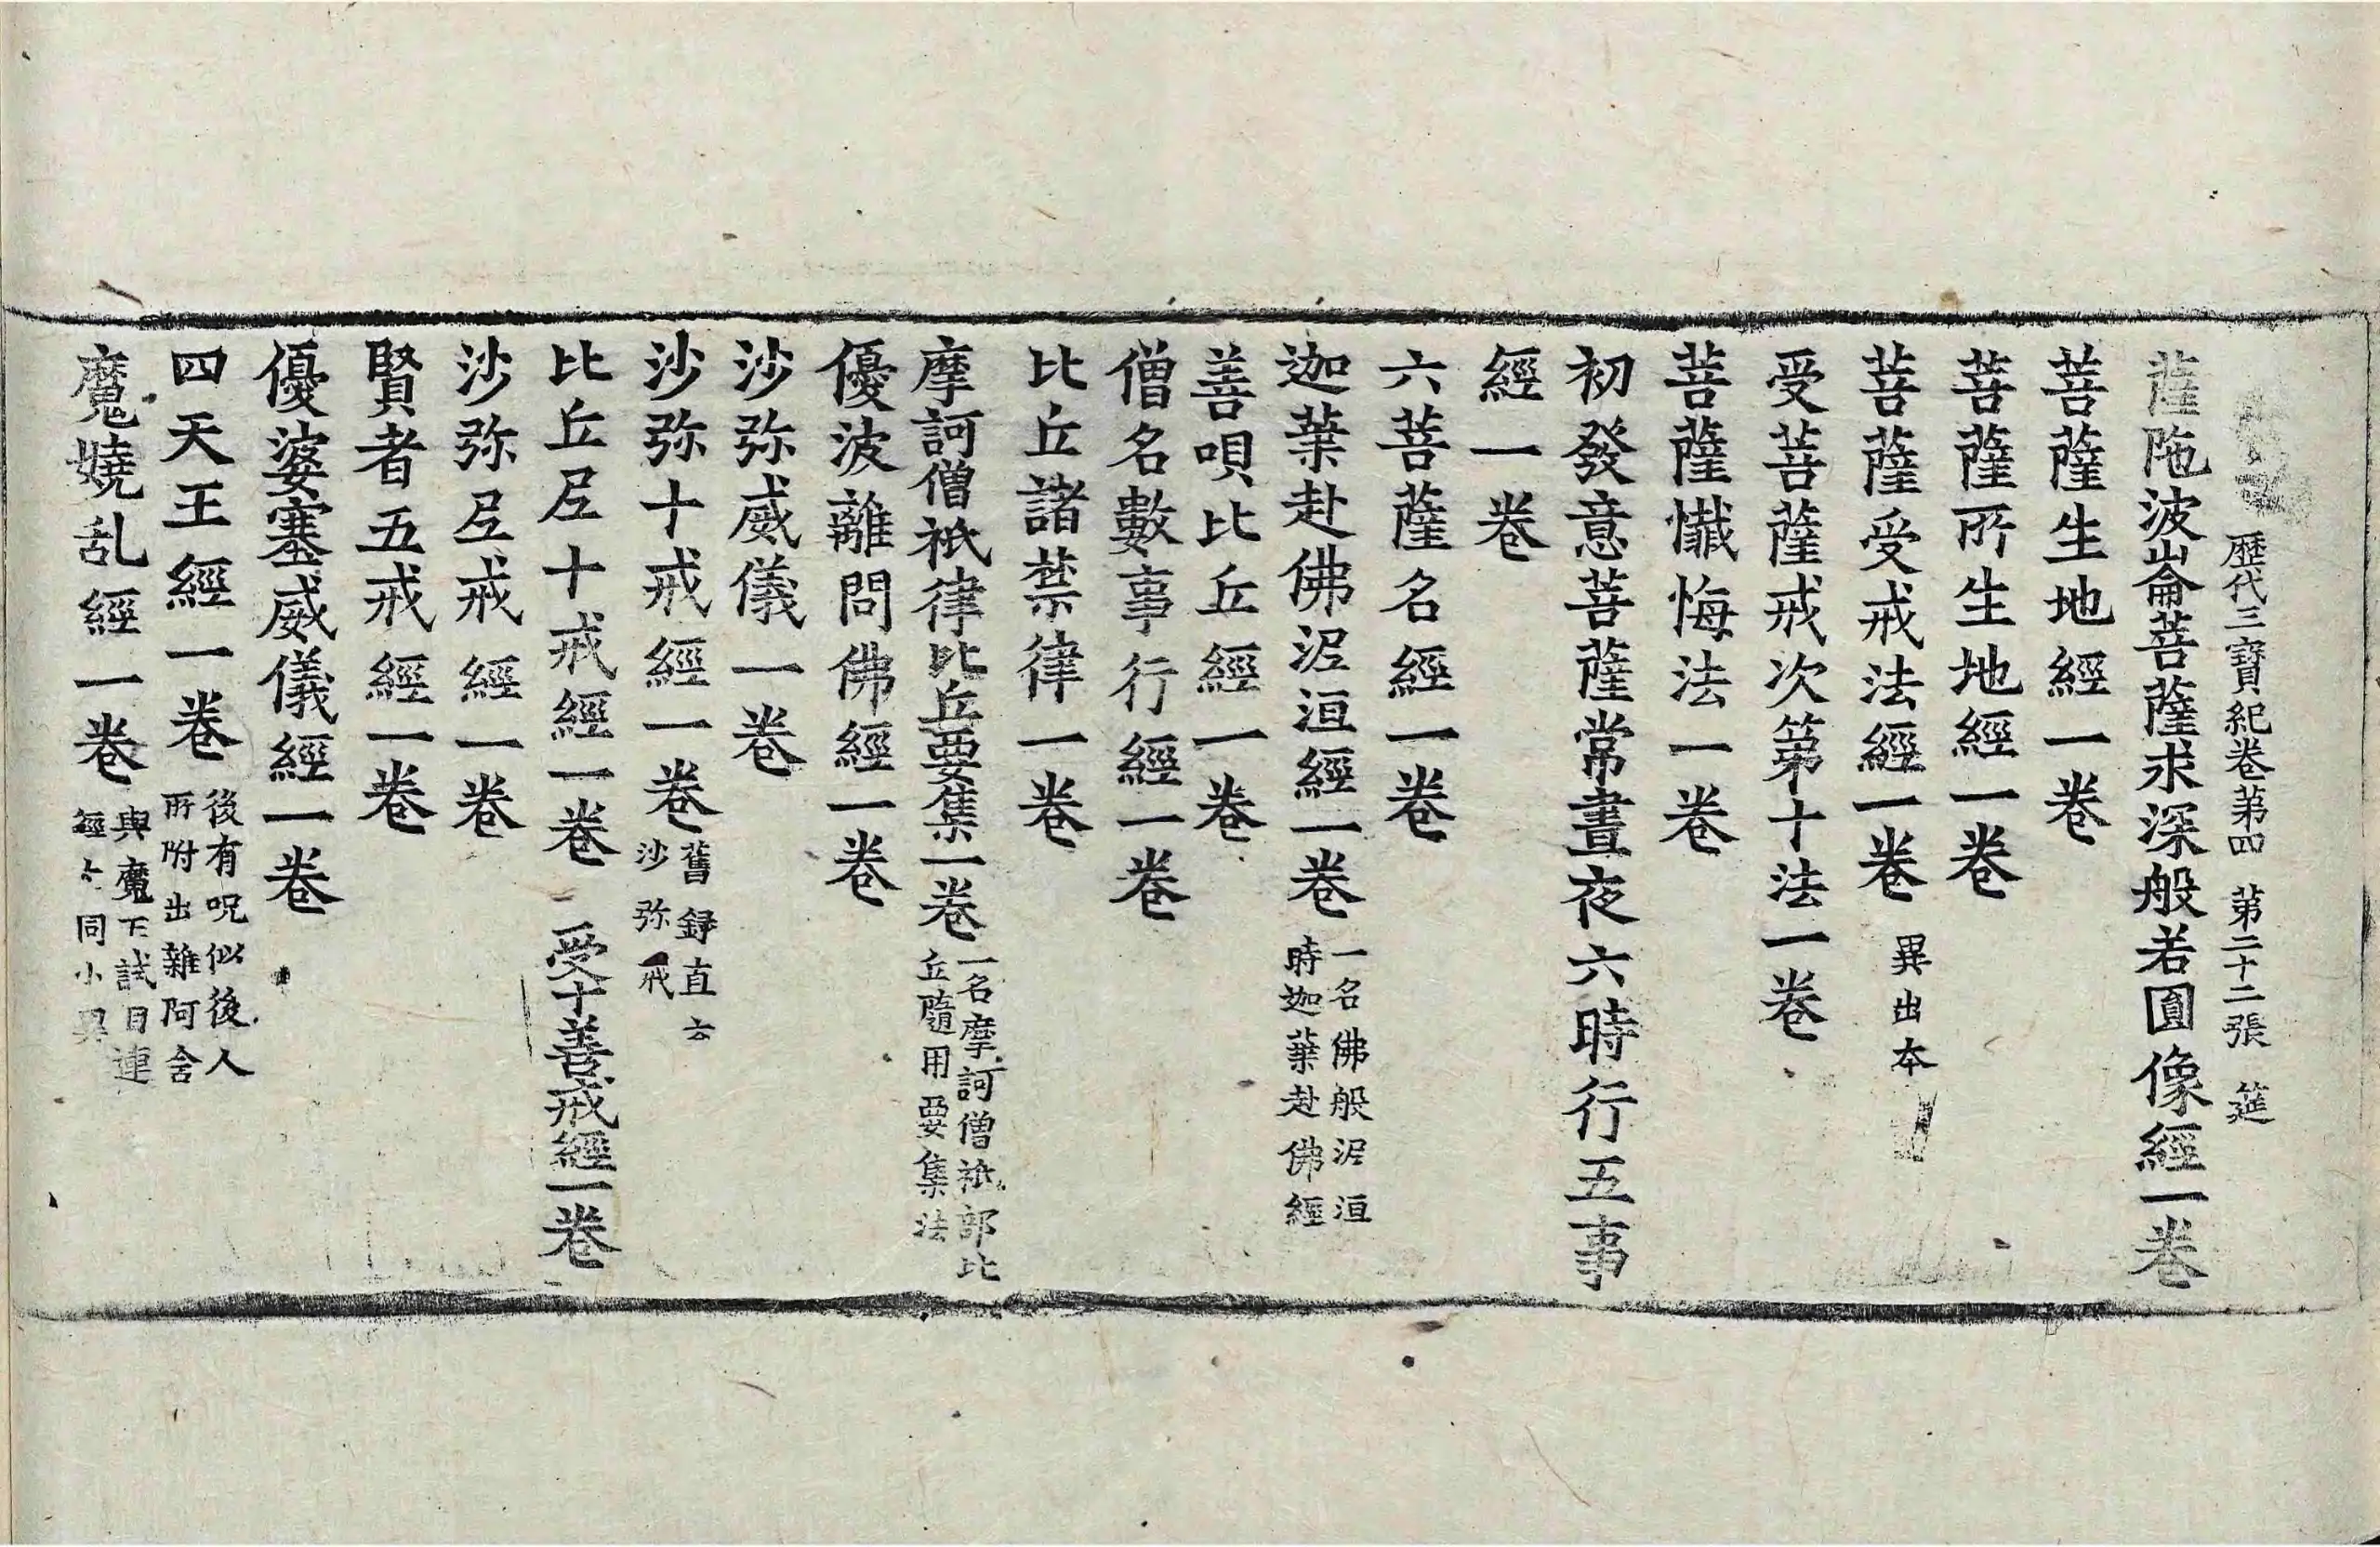 歷代三寶紀卷第四 第二十二張 筵
薩陁波崙菩薩求深般若圓像經一卷
菩薩生地經一卷
菩薩所生地經一卷
菩薩受戒法經一卷 異出本
受菩薩戒次第十法一卷
菩薩懺悔法一卷
初發意菩薩常晝夜六時行五事
經一卷
六菩薩名經一卷
迦葉赴佛泥洹經一卷 一名佛般泥洹
時迦葉赴佛經
善唄比丘經一卷
僧名數事行經一卷
比丘諸禁律一卷
摩訶僧祇律比丘要集一卷 一名摩訶僧祇部比
丘隨用要集法
優波離問佛經一卷
沙弥威儀一卷
沙弥十戒經一卷 舊錄直云
沙弥戒
比丘尼十戒經一卷 受十善戒經一卷
沙弥尼戒經一卷
賢者五戒經一卷
優婆塞威儀經一卷
四天王經一卷 後有呪似後人
所附出雜阿含
魔嬈乱經一卷 與魔王試目連
經大同小異